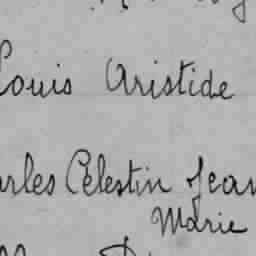 Louis Aristide
arles Célestin Jean
Marie